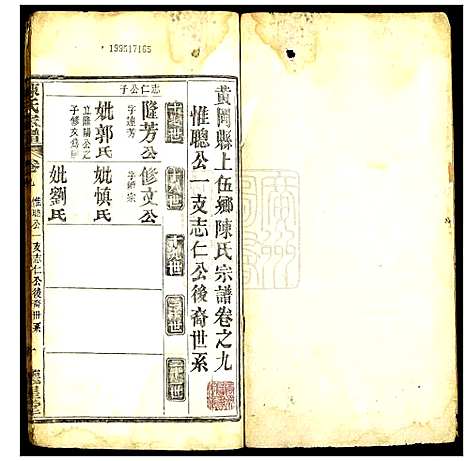 199517165
黃岡縣上伍鄉陳氏宗譜卷之九
惟聰公一支志仁公後裔世系
十七世
十八世
十九世
二十世
志仁公子
隆芳公
字遠芳
妣郭氏
立隆陽公之
子修文為嗣
修文公
妣慎氏
妣劉氏
陳氏宗譜
卷九
惟聰公一支志仁公後裔世系
一